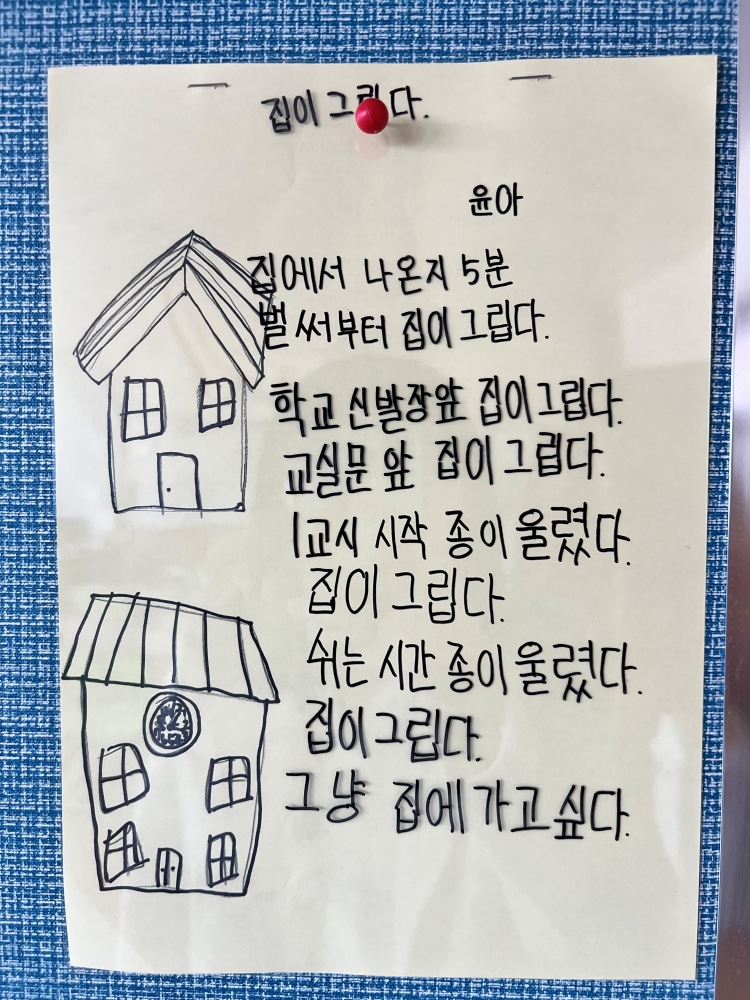 집이 그립다.
윤아
집에서 나온지 5분
벌써부터 집이 그립다.
학교 신발장앞 집이 그립다.
교실문 앞 집이 그립다.
1교시 시작 종이 울렸다.
집이 그립다.
쉬는 시간 종이 울렸다.
집이 그립다.
그냥 집에 가고 싶다.